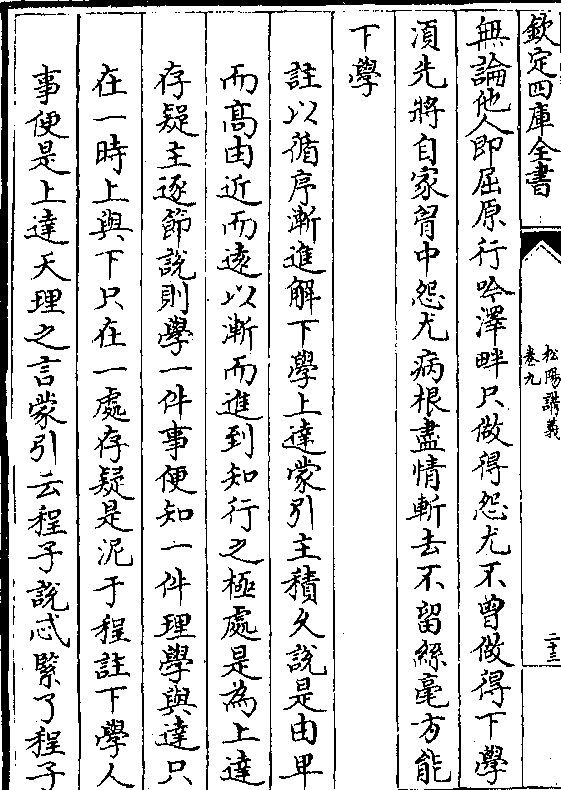 欽定四庫全書
松陽講義
卷九
二十三
無論他人即屈原行吟澤畔只做得怨尤不曾做得下學
湏先將自家胷中怨尤病根盡情斬去不留絲毫方能
下學
註以循序漸進解下學上達蒙引主積久說是由卑
而髙由近而逺以漸而進到知行之極處是為上達
存疑主逐節說則學一件事便知一件理學與達只
在一時上與下只在一處存疑是泥于程註下學人
事便是上達天理之言蒙引云程子說忒緊了程子